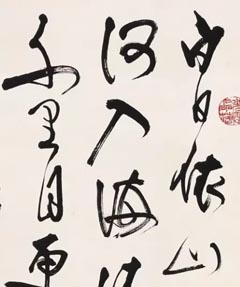 白日依山
河入海流
千里目更